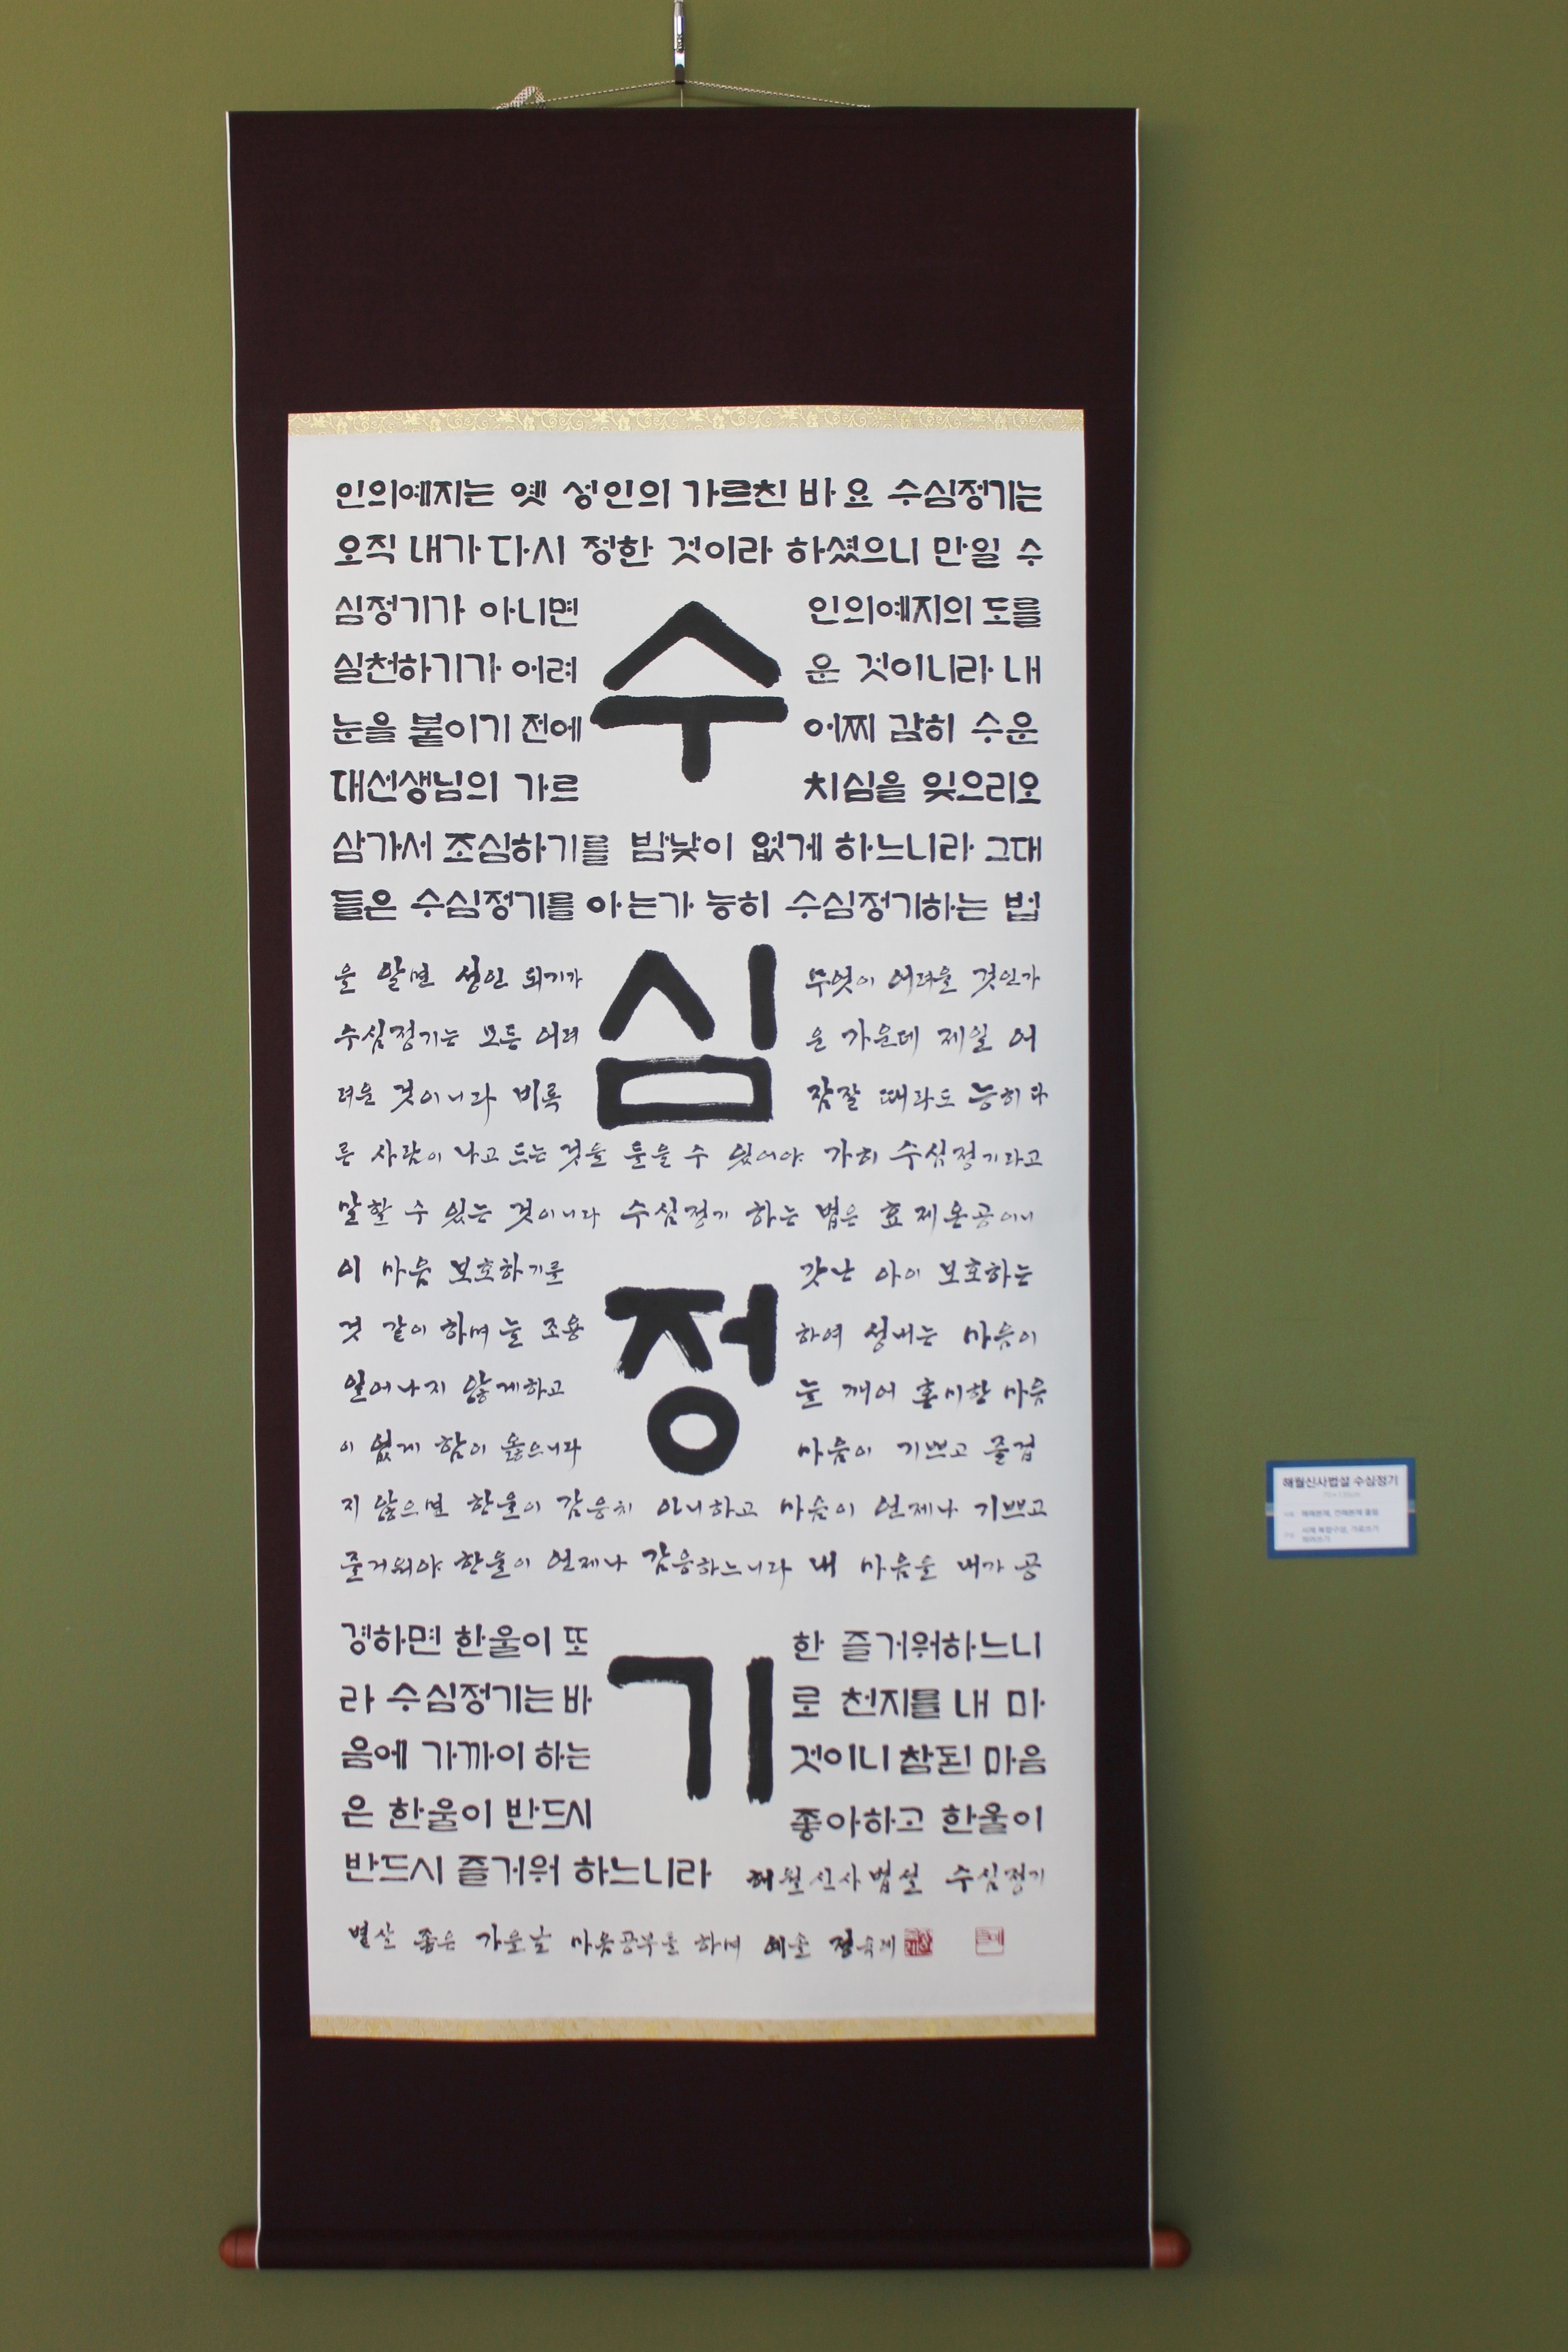 인의예지는 옛 성인의 가르친 바요 수심정기는
오직 내가 다시 정한 것이라 하셨으니 만일 수
심정기가 아니면 인의예지의 도를
실천하기가 어려 운 것이니라 내
눈을 붙이기 전에 어찌 감히 수운
대선생님의 가르 치심을 잊으리오
삼가서 조심하기를 밤낮이 없게 하느니라 그대
들은 수심정기를 아는가 능히 수심정기하는 법
수
을 알면 성인 되기가 무엇이 어려울 것인가
수심정기는 모든 어려 운 가운데 제일 어
려운 것이니라 비록 잠잘 때라도 능히 다
심
른 사람이 나고 드는 것을 볼 수 있어야 가히 수심정기라고
말할 수 있는 것이니라 수심정기 하는 법은 효제온공이니
이 마음 보호하기를 갓난 아이 보호하는
것 같이 하며 늘 조용 하여 성내는 마음이
일어나지 않게하고 늘 깨어 혼미한 마음
이 없게 함이 옳으니라 마음이 기쁘고 즐겁
정
지 않으면 한울이 감응치 아니하고 마음이 언제나 기쁘고
즐거워야 한울이 언제나 감응하느니라 내 마음을 내가 공
경하면 한울이 또 한 즐거워하느니
라 수심정기는 바 로 천지를 내 마
음에 가까이 하는 것이니 참된 마음
은 한울이 반드시 좋아하고 한울이
기
반드시 즐거워 하느니라 해월신사법설 수심정기
볕살 좋은 가을날 마음공부를 하며 예손 정숙례
해월신사법설 수심정기